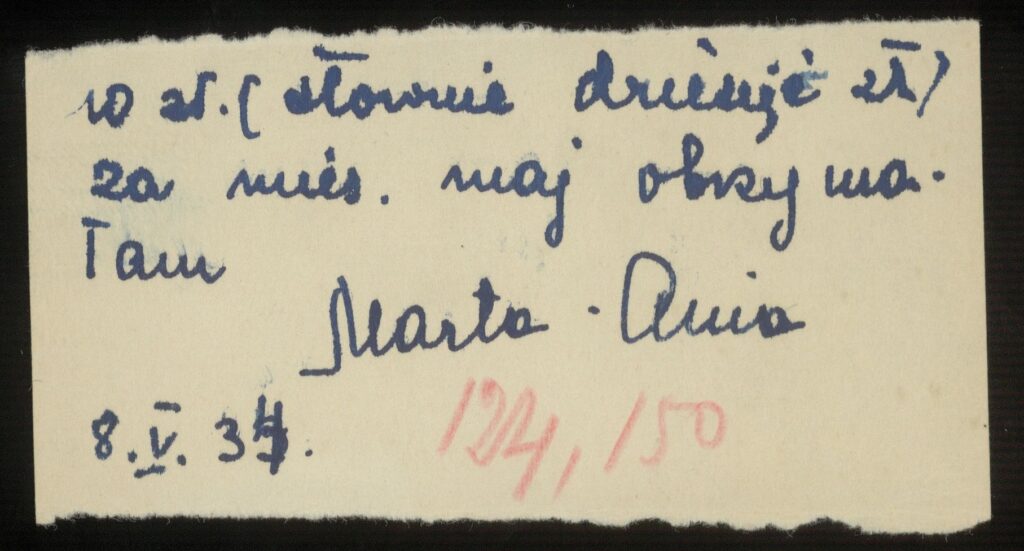 10 zł. (słownie dziesięć zł)
za mies. maj otrzyma-
łam
Marta - Ania
8.V.34.
124, 150